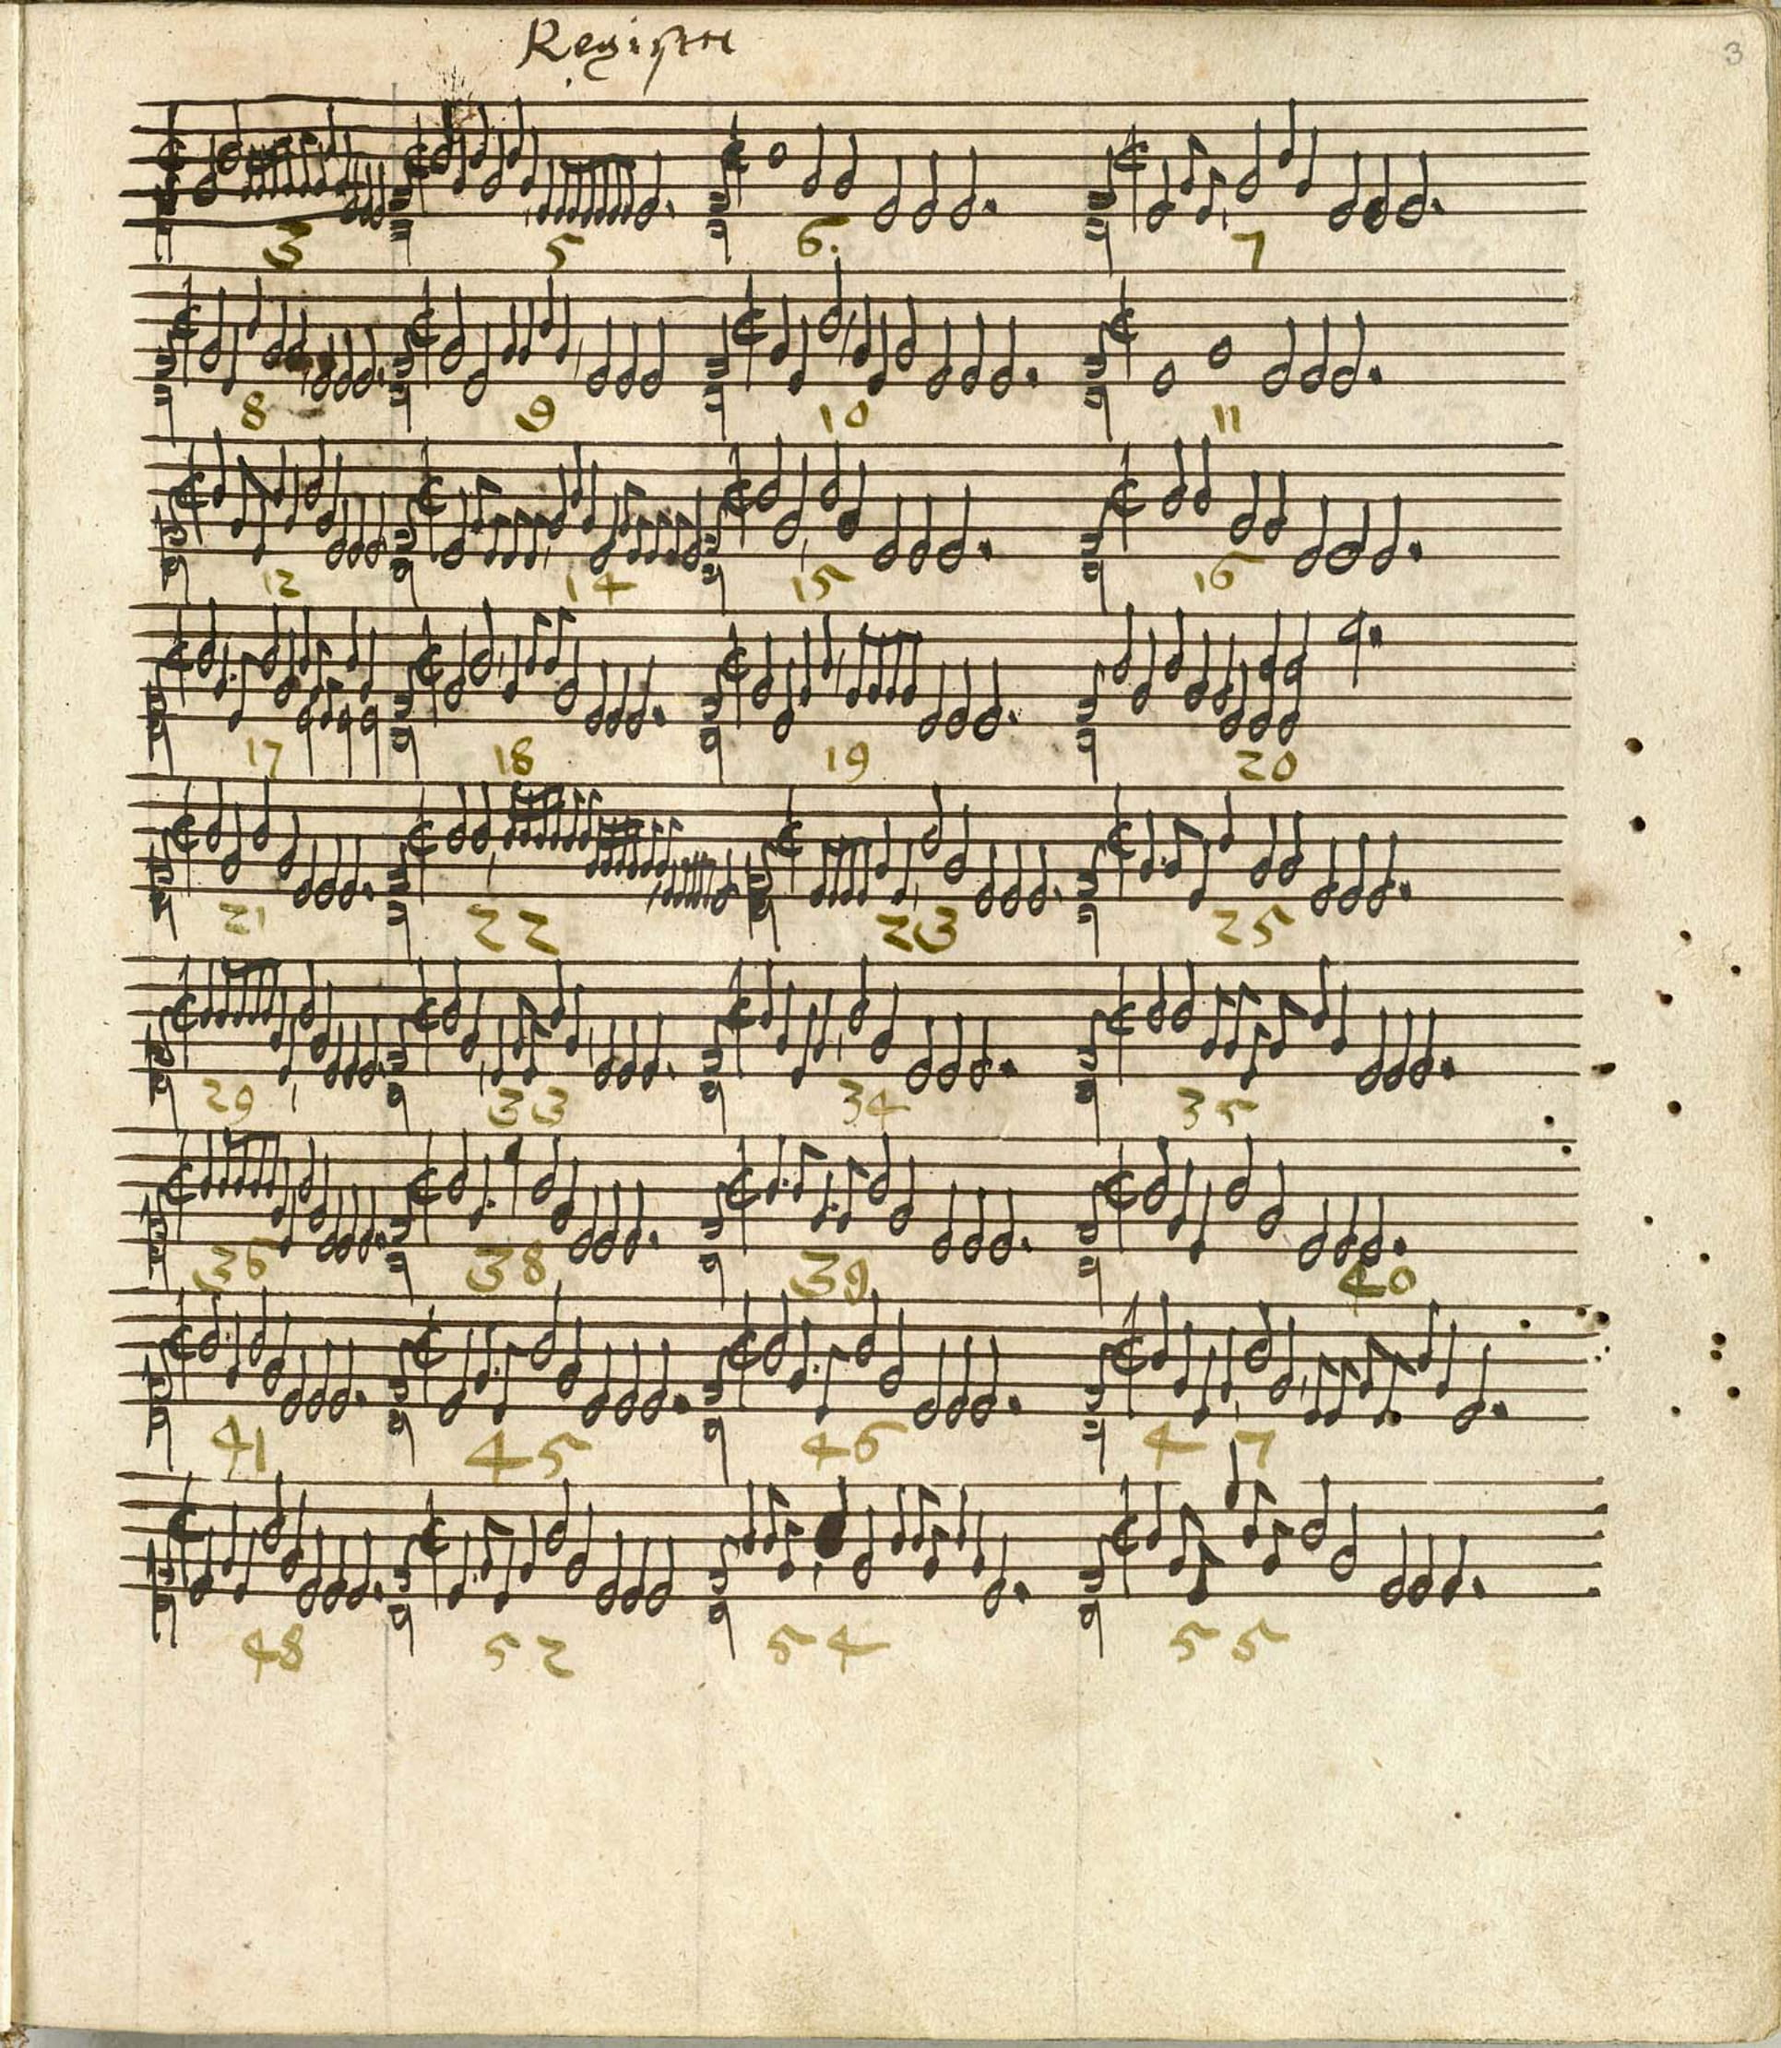 Register
3
3 5 6. 7
8 9 10 11
12 14 15 16
17 18 19 20
21 22 23 25
29 33 34 35
36 38 39 40
41 45 46 47
48 52 54 55